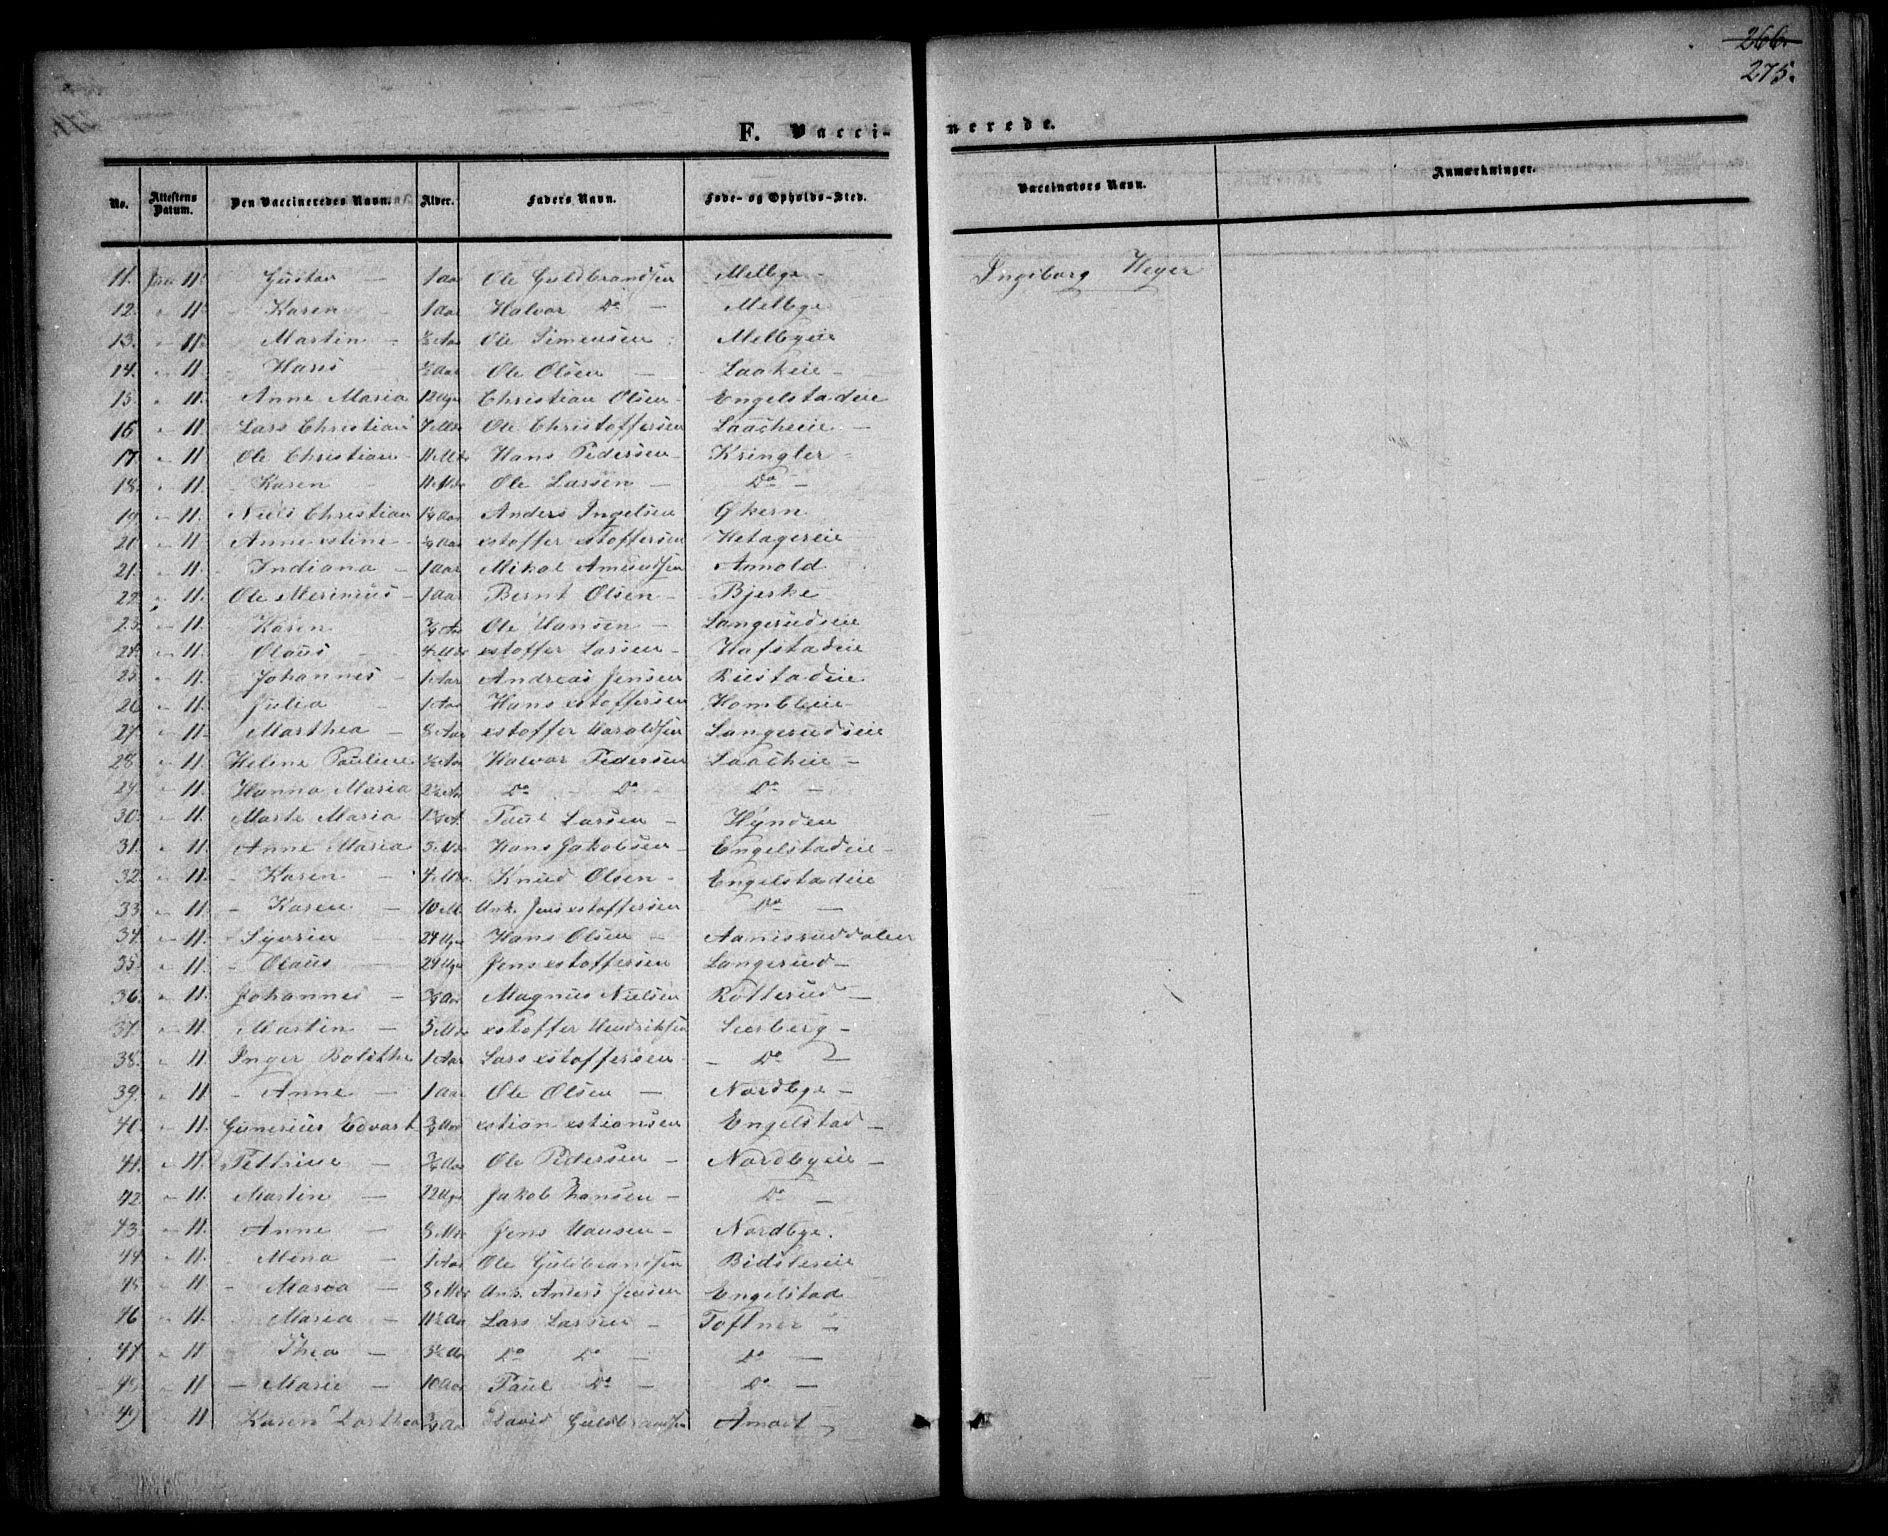 266.
275.
F. Vaccinerede.
No. Attestens Datum. Den Vaccineredes Navn. Alder. Faders Navn. Føde- og Opholds-Sted. Vaccinators Navn. Anmærkninger.
11. 11. Gustav — 1 Aar Ole Guldbrandsen Melbye - Ingeborg Heyer
12. " 11. - Karen - 1 Aar Halvor Do — Melbye
13. " 11. Martin - Aar Ole Simensen Melbyeie
14. " 11. Hans ½ Aar Ole Olsen — Laakeie -
15. " 11. Anne Maria 12 Uger Christian Olsen - Engelstadeie
16 " 11. Lars Christian 7 Mdr Ole Christoffersen Laacheie —
17. " 11. Ole Christian - 11 Mdr Hans Pedersen - Kringler -
18. " 11. - Karen 11 Mdr Ole Larsen — Do -
19. " 11. Niels Christian 1¼ Aar Anders Ingelsen Økern
20. " 11. Anne xstine - Aar xstoffer xstoffersen Hetagereie
21. " 11. Indiana - 1 Aar Mikal Amundsen Arnold
22. " 11. Ole Merinius - 1 Aar Bernt Olsen - Bjerke -
23. " 11. Karen ¾ Aar Ole Hansen — Langerudseie
24. " 11. Olaus 4 Mdr xstoffer Larsen - Hafstadeie
25. " 11. Johannes - 1 Aar Andreas Jensen Riistadeie
26 " 11. Julia - 1 Aar Hans xstoffersen Hombleie -
27. " 11. Marthea — 8 Aar xstoffer Haroldsen Langerudseie
28. " 11. Helene Pauline Aar Halvor Pedersen Laacheie —
29. " 11. Hanna Maria 2½ Aar Do - Do - Do —
30. " 11. Marte Maria Paul Larsen - Hynden
31. " 11. Anne Maria 3 Mdr Hans Jakobsen - Engelstadeie -
32. " 11. - Karen - 4 Mdr. Knud Olsen - Engelstadeie
33. " 11. - Karen — 10 M. Unk. Jens xstoffersen Do —
34. " 11. Syverin — 24 Uger Hans Olsen - Aamodruddalen
35. " 11. - Olaus - 24 Uger Jens xstoffersen Langerud —
36. " 11. Johannes — ¾ Aar Magnus Nielsen Rotterud —
37. " 11. Martin — 5 Mdr xstoffer Hendriksen Leerberg —
38. " 11. Inger Bolethe 1 Aar Lars xstoffersen - - Do —
39. " 11. - Anne 1 Aar Ole Olsen — Nordbye —
40. " 11. Gunerius Edvart ¾ Aar xstian xstiansen Engelstad —
41. " 11. Pettrine — Aar Ole Pedersen — Nordbyeie —
42. " 11. Martin — 22 Uger Jakob Hansen — Do —
43. " 11. Anne — 8 Mdr Jens Hansen — Nordbye.
44 " 11. Mina — 1 Aar Ole Guldbrandsen Bidslereie
45. " 11 - Maria — 8 Mdr Unk. Anders Jensen Engelstad
46 " 11. Maria — 11½ Aar Lars Larsen — Toftner -
47 " 11 Thea — 3½ Aar Do Do — Do —
48 " 11 — Marie — 10 Aar Paul Do — Do —
49 " 11 Karen Dorthea ¾ Aar David Guldbrandsen Amoet -